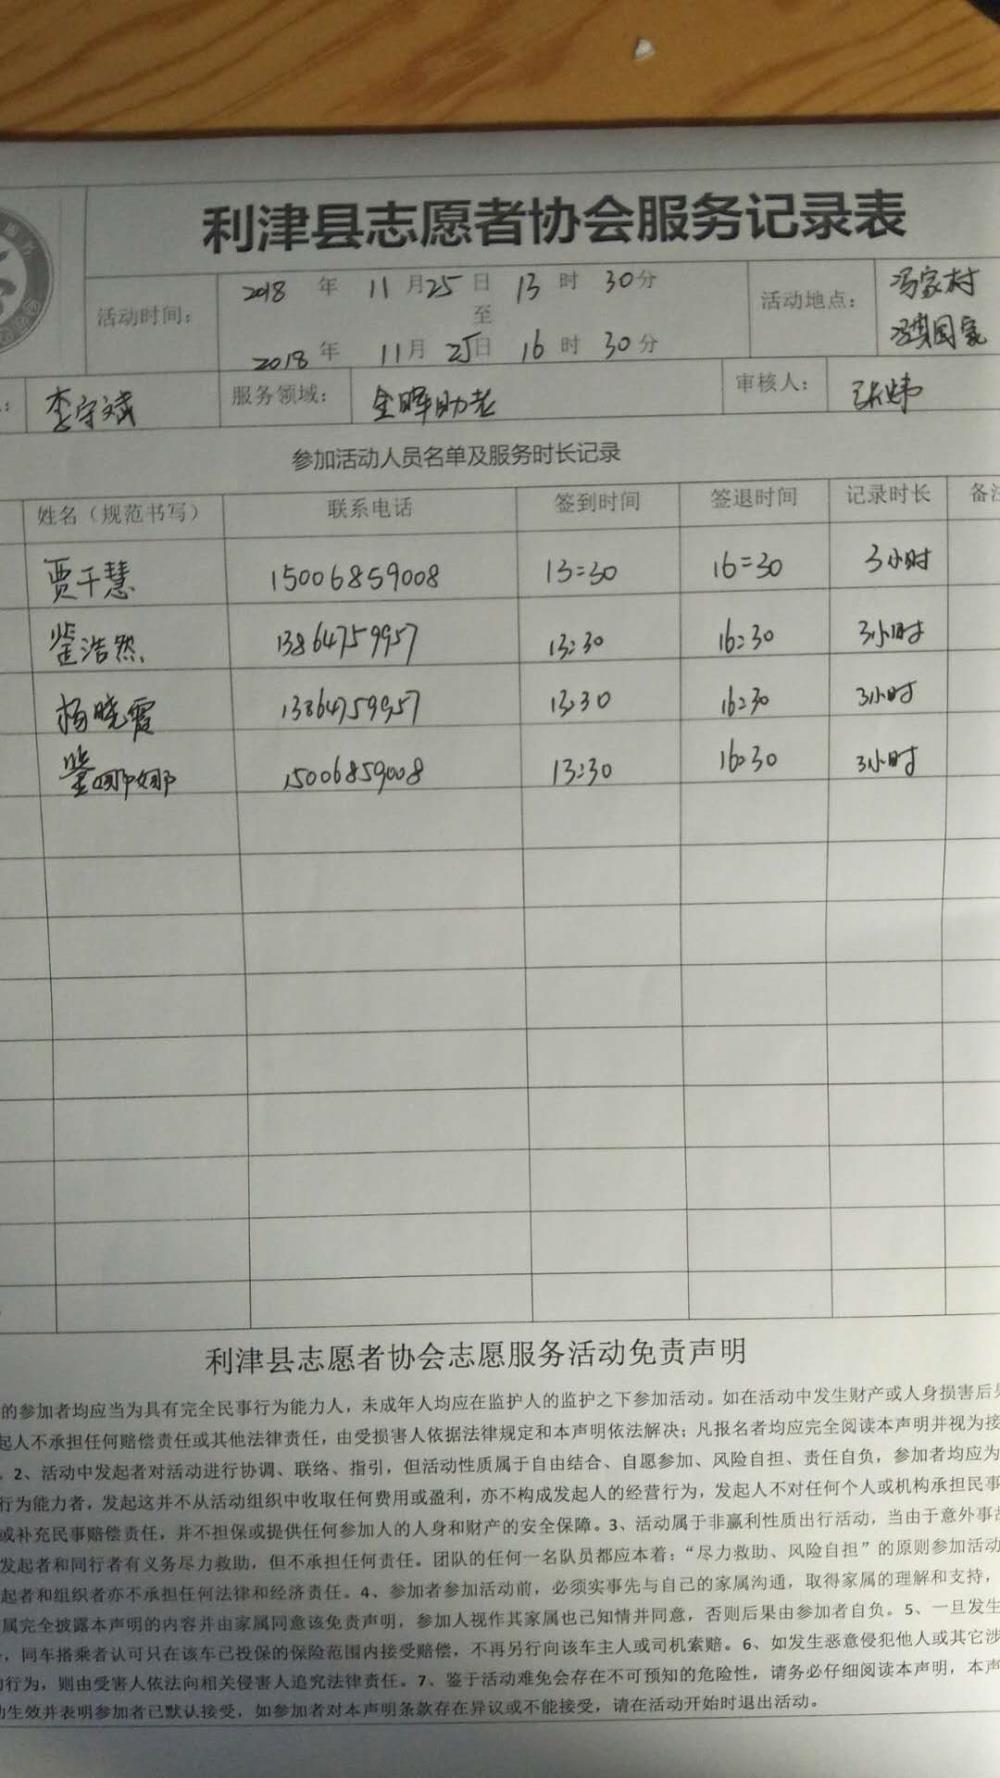 利津县志愿者协会服务记录表
活动时间： 2018 年 11 月 25 日 13 时 30 分
至
2018 年 11 月 25 日 16 时 30 分
活动地点： 冯家村
国家
： 李守斌 服务领域： 金晖助老 审核人： 张炜
参加活动人员名单及服务时长记录
姓名（规范书写） 联系电话 签到时间 签退时间 记录时长 备注
贾千慧 15006859008 13:30 16:30 3小时
浩然 13864759957 13:30 16:30 3小时
杨晓霞 13864759957 13:30 16:30 3小时
娜娜 15006859008 13:30 16:30 3小时
利津县志愿者协会志愿服务活动免责声明
的参加者均应当为具有完全民事行为能力人，未成年人均应在监护人的监护之下参加活动。如在活动中发生财产或人身损害后果
起人不承担任何赔偿责任或其他法律责任，由受损害人依据法律规定和本声明依法解决；凡报名者均应完全阅读本声明并视为接
。2、活动中发起者对活动进行协调、联络、指引，但活动性质属于自由结合、自愿参加、风险自担、责任自负，参加者均应为
行为能力者，发起这并不从活动组织中收取任何费用或盈利，亦不构成发起人的经营行为，发起人不对任何个人或机构承担民事
或补充民事赔偿责任，并不担保或提供任何参加人的人身和财产的安全保障。3、活动属于非赢利性质出行活动，当由于意外事故
发起者和同行者有义务尽力救助，但不承担任何责任。团队的任何一名队员都应本着：“尽力救助、风险自担”的原则参加活动
起者和组织者亦不承担任何法律和经济责任。4、参加者参加活动前，必须实事先与自己的家属沟通，取得家属的理解和支持，
属完全披露本声明的内容并由家属同意该免责声明，参加人视作其家属也已知情并同意，否则后果由参加者自负。5、一旦发生
，同车搭乘者认可只在该车已投保的保险范围内接受赔偿，不再另行向该车主人或司机索赔。6、如发生恶意侵犯他人或其它涉
行为，则由受害人依法向相关侵害人追究法律责任。7、鉴于活动难免会存在不可预知的危险性，请务必仔细阅读本声明，本声
生效并表明参加者已默认接受，如参加者对本声明条款存在异议或不能接受，请在活动开始时退出活动。